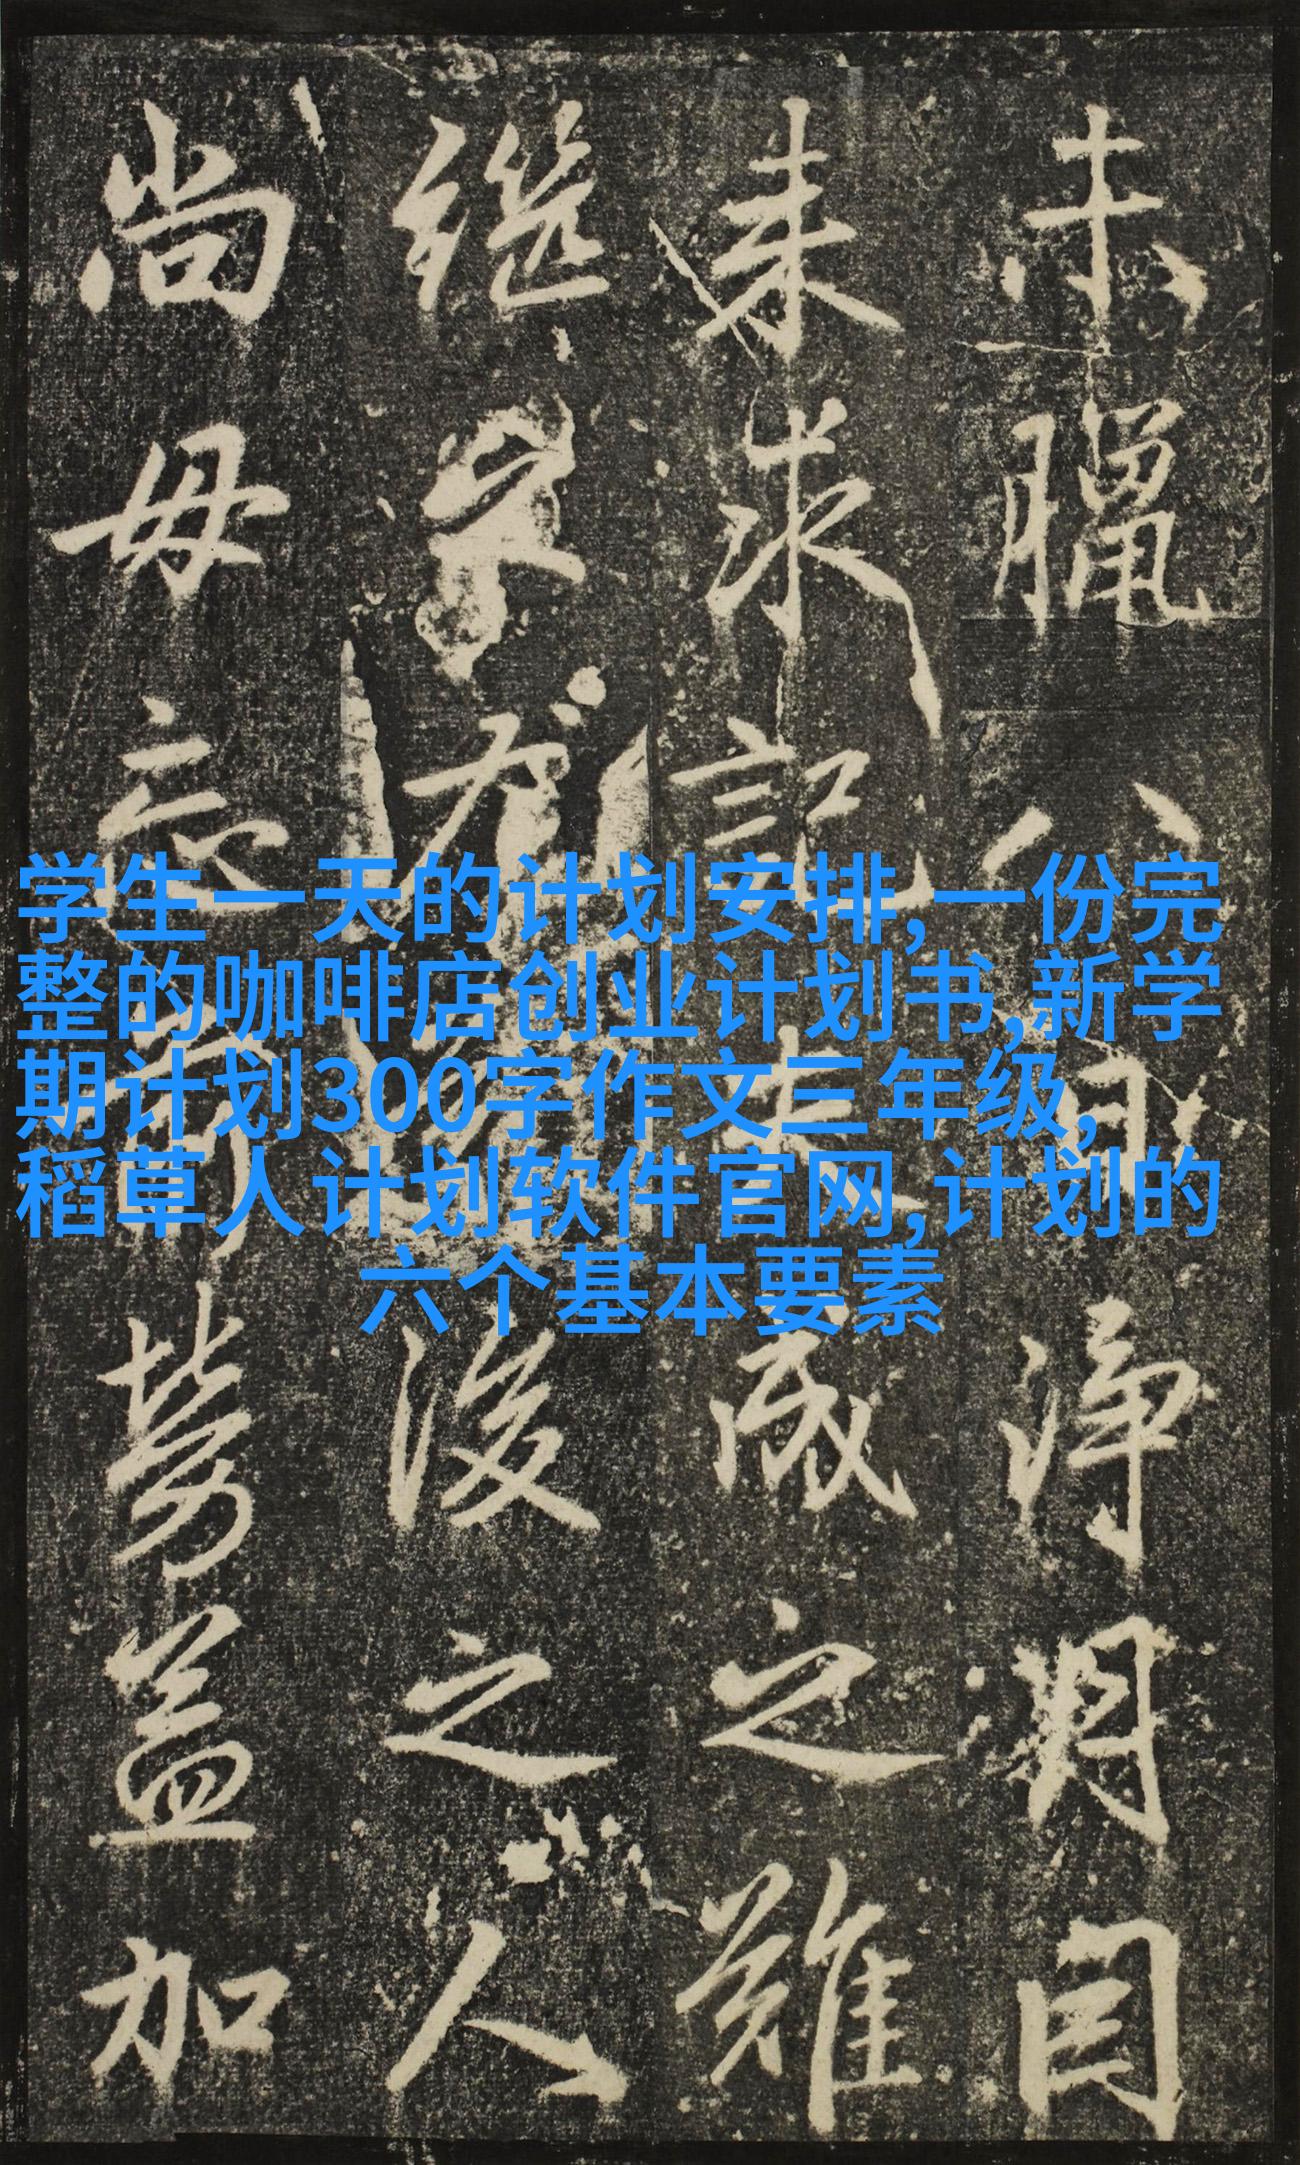 学生一天的计划安排,一份完
整的咖啡店创业计划书,新学
期计划300字作文三年级,
稻草人计划软件官网,计划的
六个基本要素
未臘八日淨
来求記成之難
後之人
尚毋忘前勞益加